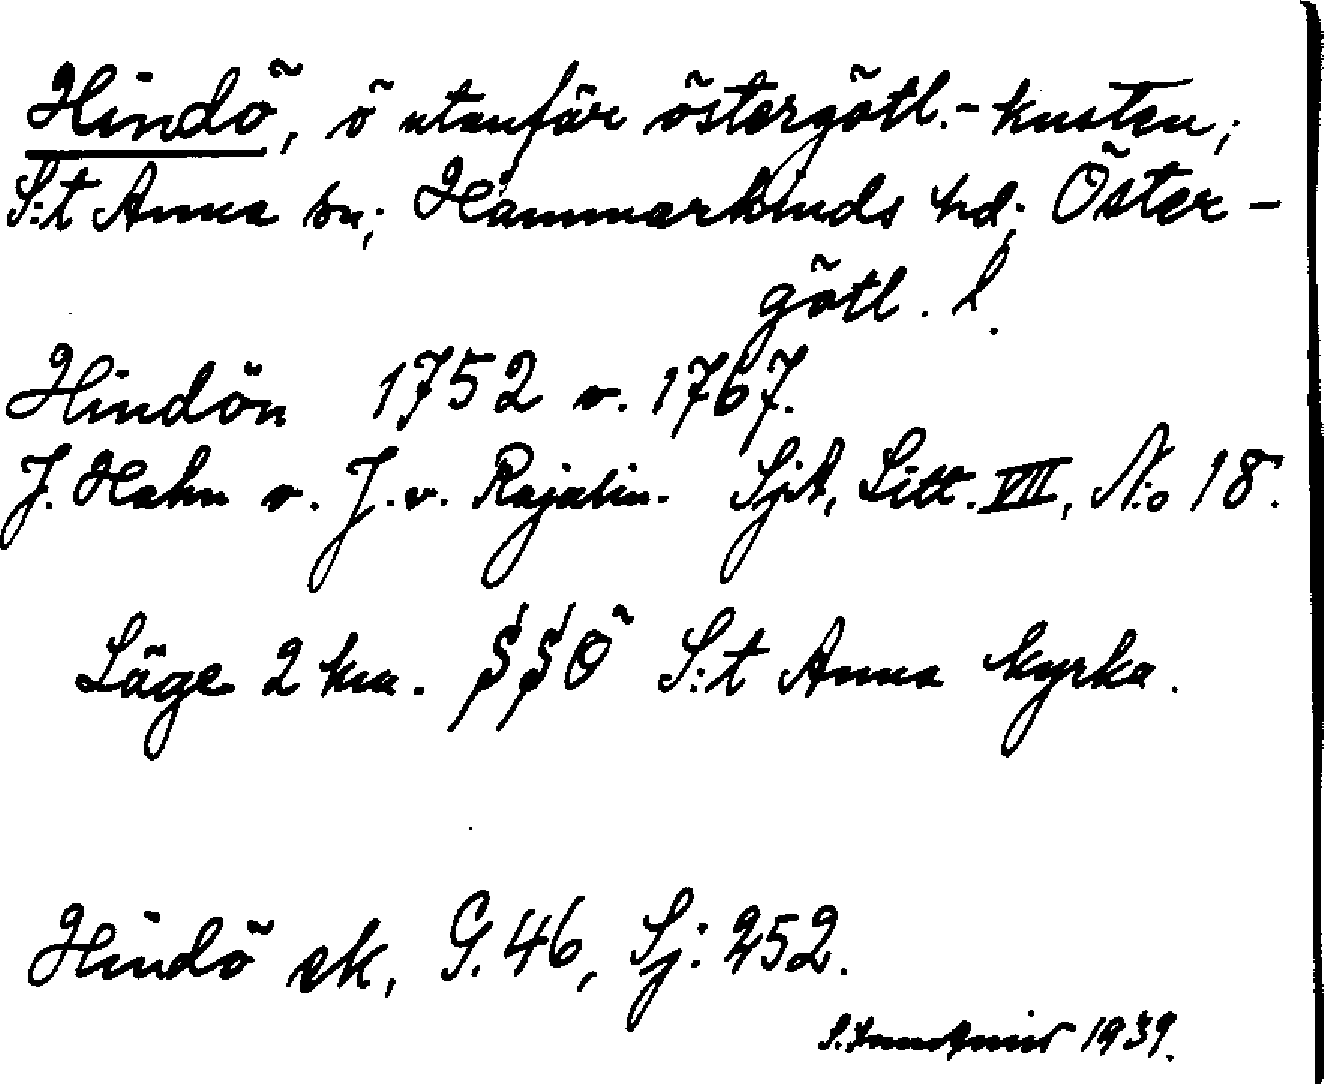 Hindö, ö utanför östergötl.-kusten;
S:t Anna sn; Hammarkinds hd; Öster-
götl. l.
Hindön 1752 o. 1767.
J. Hahn o. J. v. Rajalin. Sjk, Litt. VII, N:o 18.
Läge 2 km. SSÖ S:t Anna kyrka.
Hindö ek, G. 46, Sj: 252.
1939.